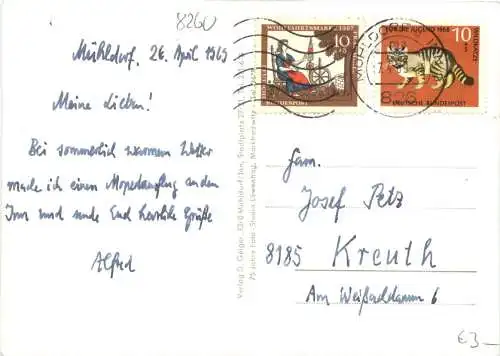 8260
Mühldorf, 26. April 1965
Meine Lieben!
Bei sommerlich warmem Wetter
mache ich einen Mopedausflug an den
Inn und sende Euch herzliche Grüße
Alfred
WOHLFAHRTSMARKE 1967
10
DEUTSCHE BUNDESPOST
FÜR DIE JUGEND 1968
10
WILDKATZE
DEUTSCHE BUNDESPOST
MÜHLDORF
826
Verlag D. Geiger, 8260 Mühldorf/Inn, Stadtplatz
Fam.
Josef Petz
8185 Kreuth
Am Weißachdamm 6
€3.-